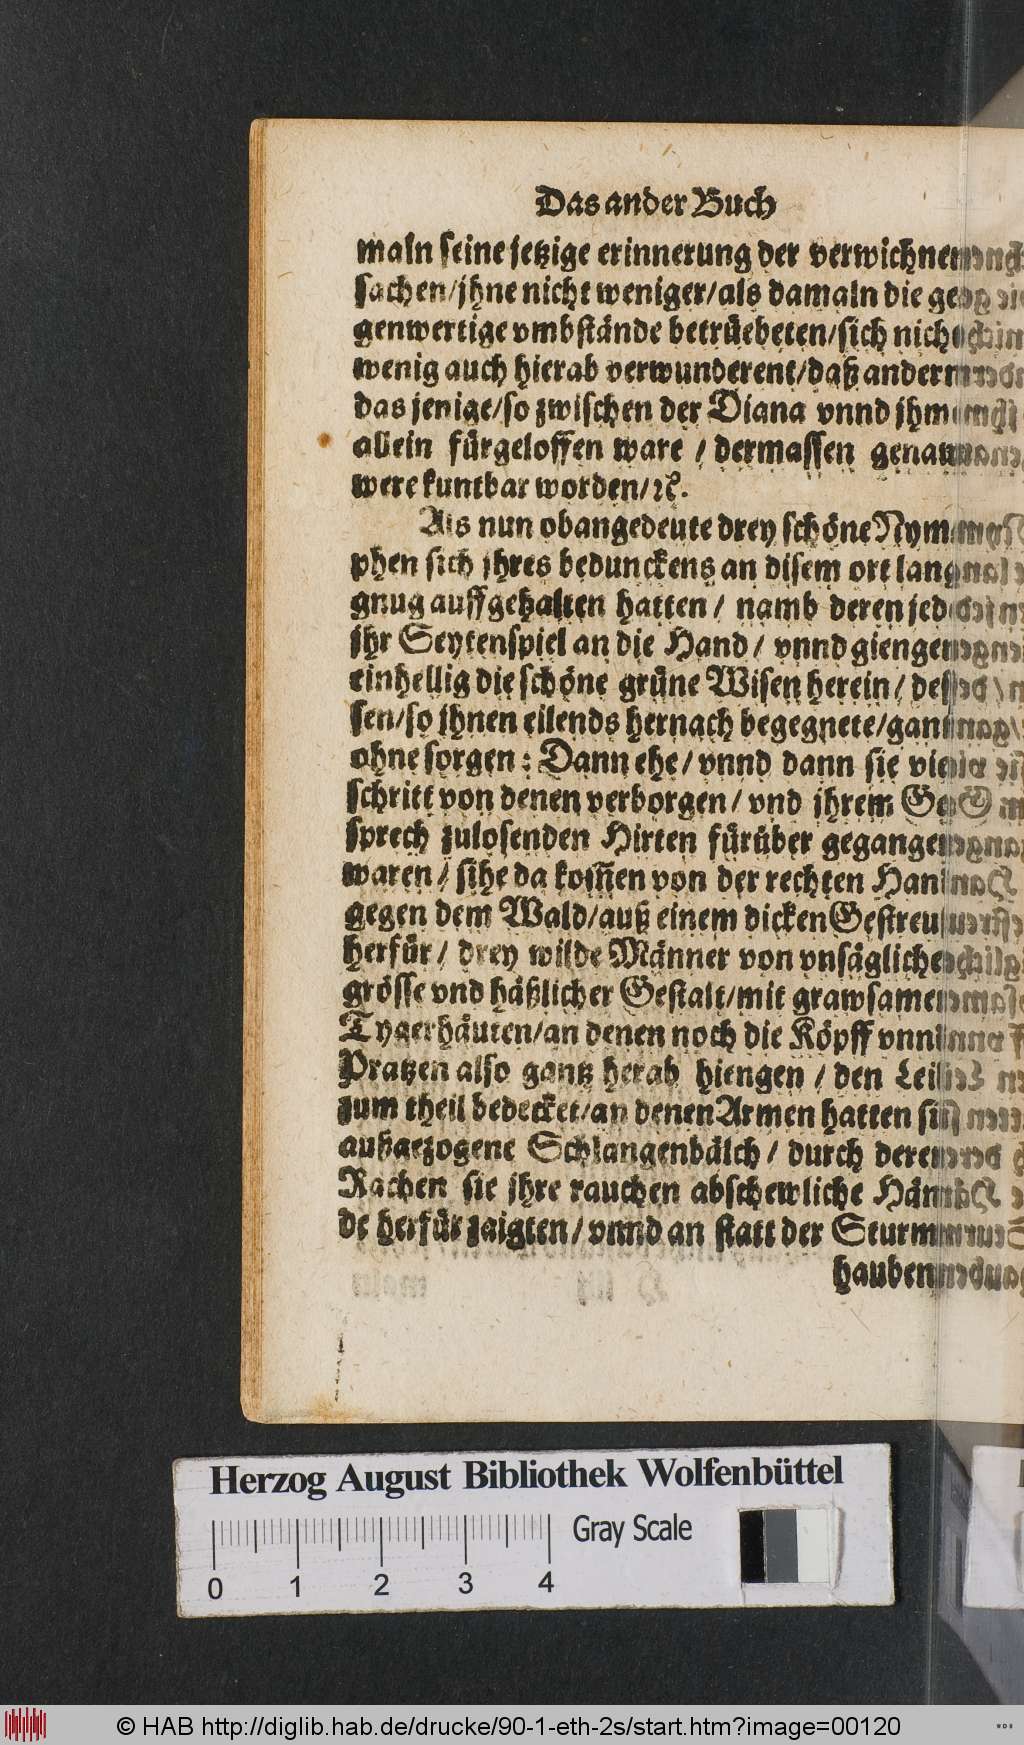 Das ander Buch
maln seine jetzige erinnerung der verwichnen
sachen/jhne nicht weniger/als damaln die ge-
genwertige vmbstände betrüebeten/sich nicht
wenig auch hierab verwunderent/daß andern
das jenige/so zwischen der Diana vnnd jhm
allein fürgeloffen ware / dermassen genaw
were kuntbar worden/ꝛc.
Als nun obangedeute drey schöne Nym-
phen sich jhres bedunckens an disem ort lang
gnug auffgehalten hatten / namb deren jede
jhr Seytenspiel an die Hand / vnnd giengen
einhellig die schöne grüne Wisen herein / des-
sen/so jhnen eilends hernach begegnete/gantz
ohne sorgen : Dann ehe / vnnd dann sie viel
schritt von denen verborgen / vnd jhrem Ge-
sprech zulosenden Hirten fürüber gegangen
waren / sihe da kom̃en von der rechten Hand
gegen dem Wald/auß einem dicken Gestreuß
herfür / drey wilde Männer von vnsäglicher
grösse vnd häßlicher Gestalt/mit grawsamen
Tygerhäuten/an denen noch die Köpff vnnd
Pratzen also gantz herab hiengen / den Leib
zum theil bedecket/an denen Armen hatten sie
außgezogene Schlangenbälch / durch deren
Rachen sie jhre rauchen abschewliche Hän-
de herfür zaigten / vnnd an statt der Sturm-
hauben
Herzog August Bibliothek Wolfenbüttel
Gray Scale
0 1 2 3 4
© HAB http://diglib.hab.de/drucke/90-1-eth-2s/start.htm?image=00120